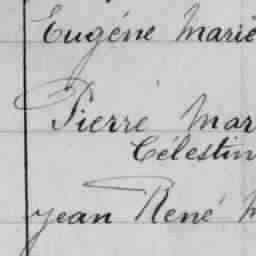 Eugéne Marie
Pierre Mar
Célestin
Jean René M